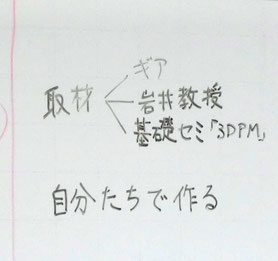 ギア
取材 岩井教授
基礎セミ「3DPM」
自分たちで作る